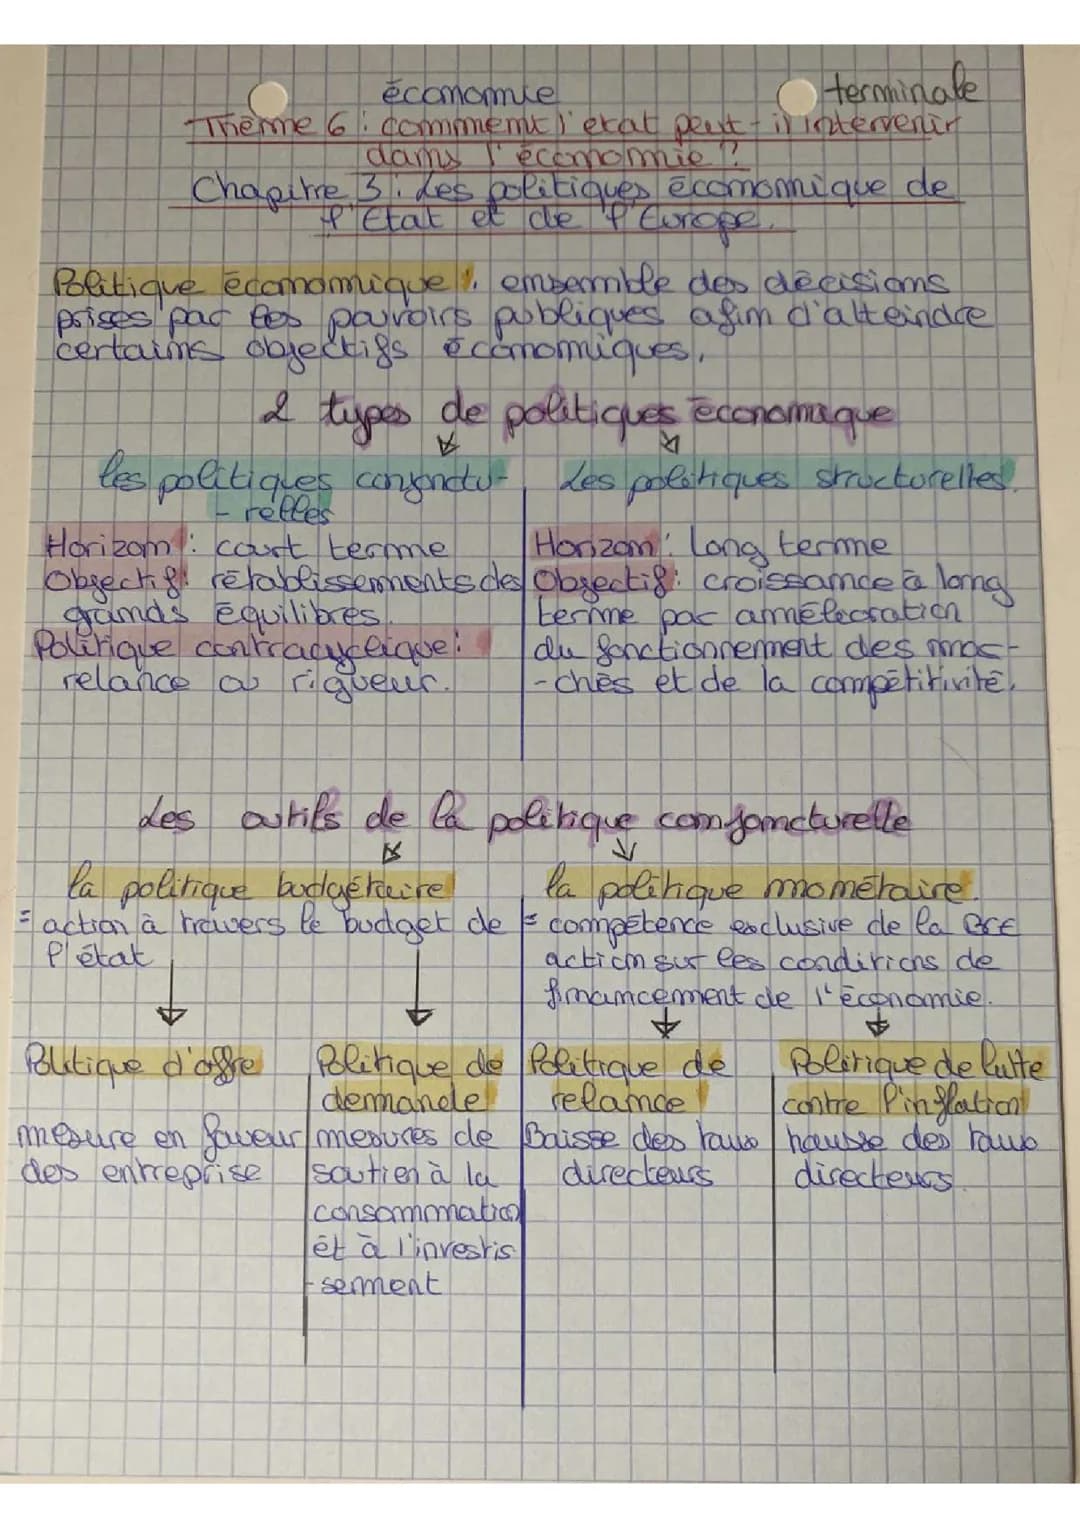 économie
terminale
Thème 6 : comment l'état peut-il intervenir
dans l'économie ?
Chapitre 3 : Les politiques économique de
l'Etat et de l'Europe.
Politique économique : ensemble des décisions
prises par les pouvoirs publiques afin d'atteindre
certains objectifs économiques.
2 types de politiques économique
les politiques conjonctu-
- relles
Horizon : court terme
Objectif : rétablissements des
grands équilibres.
Politique contracyclique :
relance ou rigueur.
Les politiques structurelles.
Horizon : Long terme
Objectif : croissance à long
terme par amélioration
du fonctionnement des mar-
-chés et de la compétitivité.
Les outils de la politique conjoncturelle
la politique budgétaire
= action à travers le budget de
l'état
la politique monétaire.
= compétence exclusive de la BCE
action sur les conditions de
financement de l'économie.
Politique d'offre
mesure en faveur
des entreprise
Politique de
demande
mesures de
soutien à la
consommation
et à l'investis
-sement
Politique de
relance
Baisse des taux
directeurs
Politique de lutte
contre l'inflation
hausse des taux
directeurs.